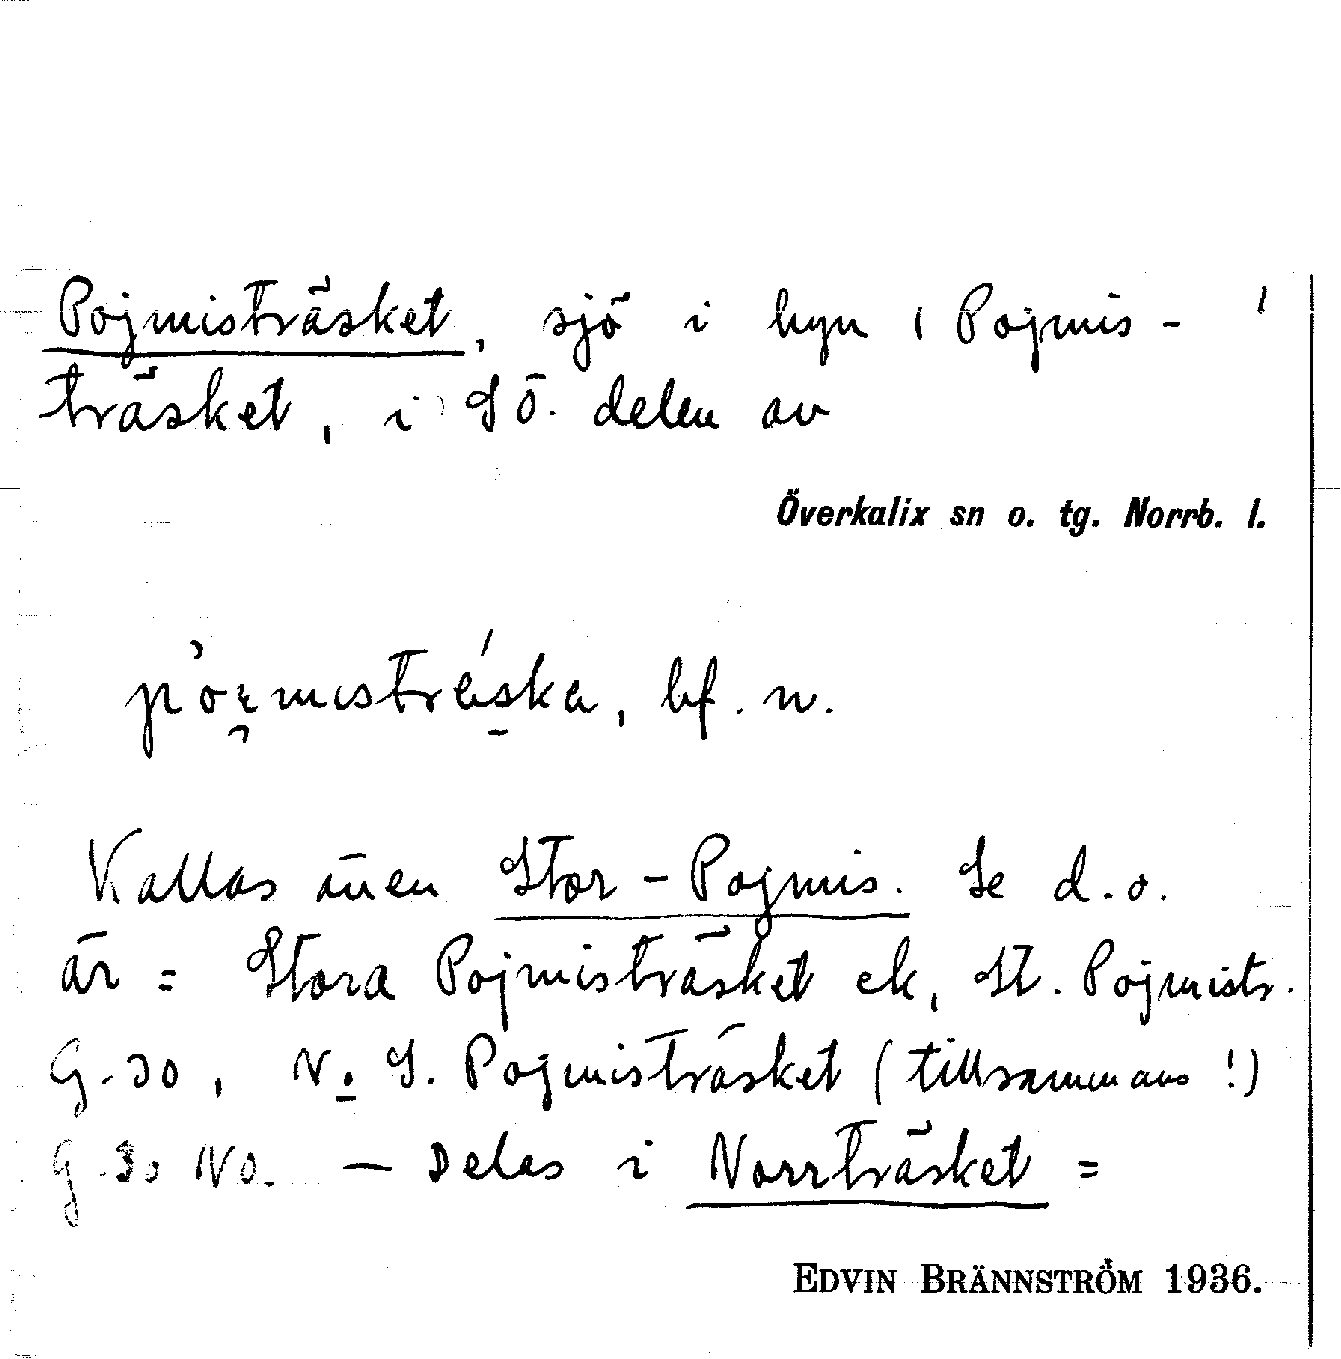 Pojmisträsket, sjö i byn Pojmis-
träsket, i SÖ. delen av
Överkalix sn o. tg. Norrb. l.
bf. n.
Kallas även Stor-Pojmis. Se d.o.
är = Stora Pojmisträsket ek, St. Pojmistr.
G.30, N. S. Pojmisträsket (tillsammans!)
G.30 NO. — Delas i Norrträsket =
EDVIN BRÄNNSTRÖM 1936.